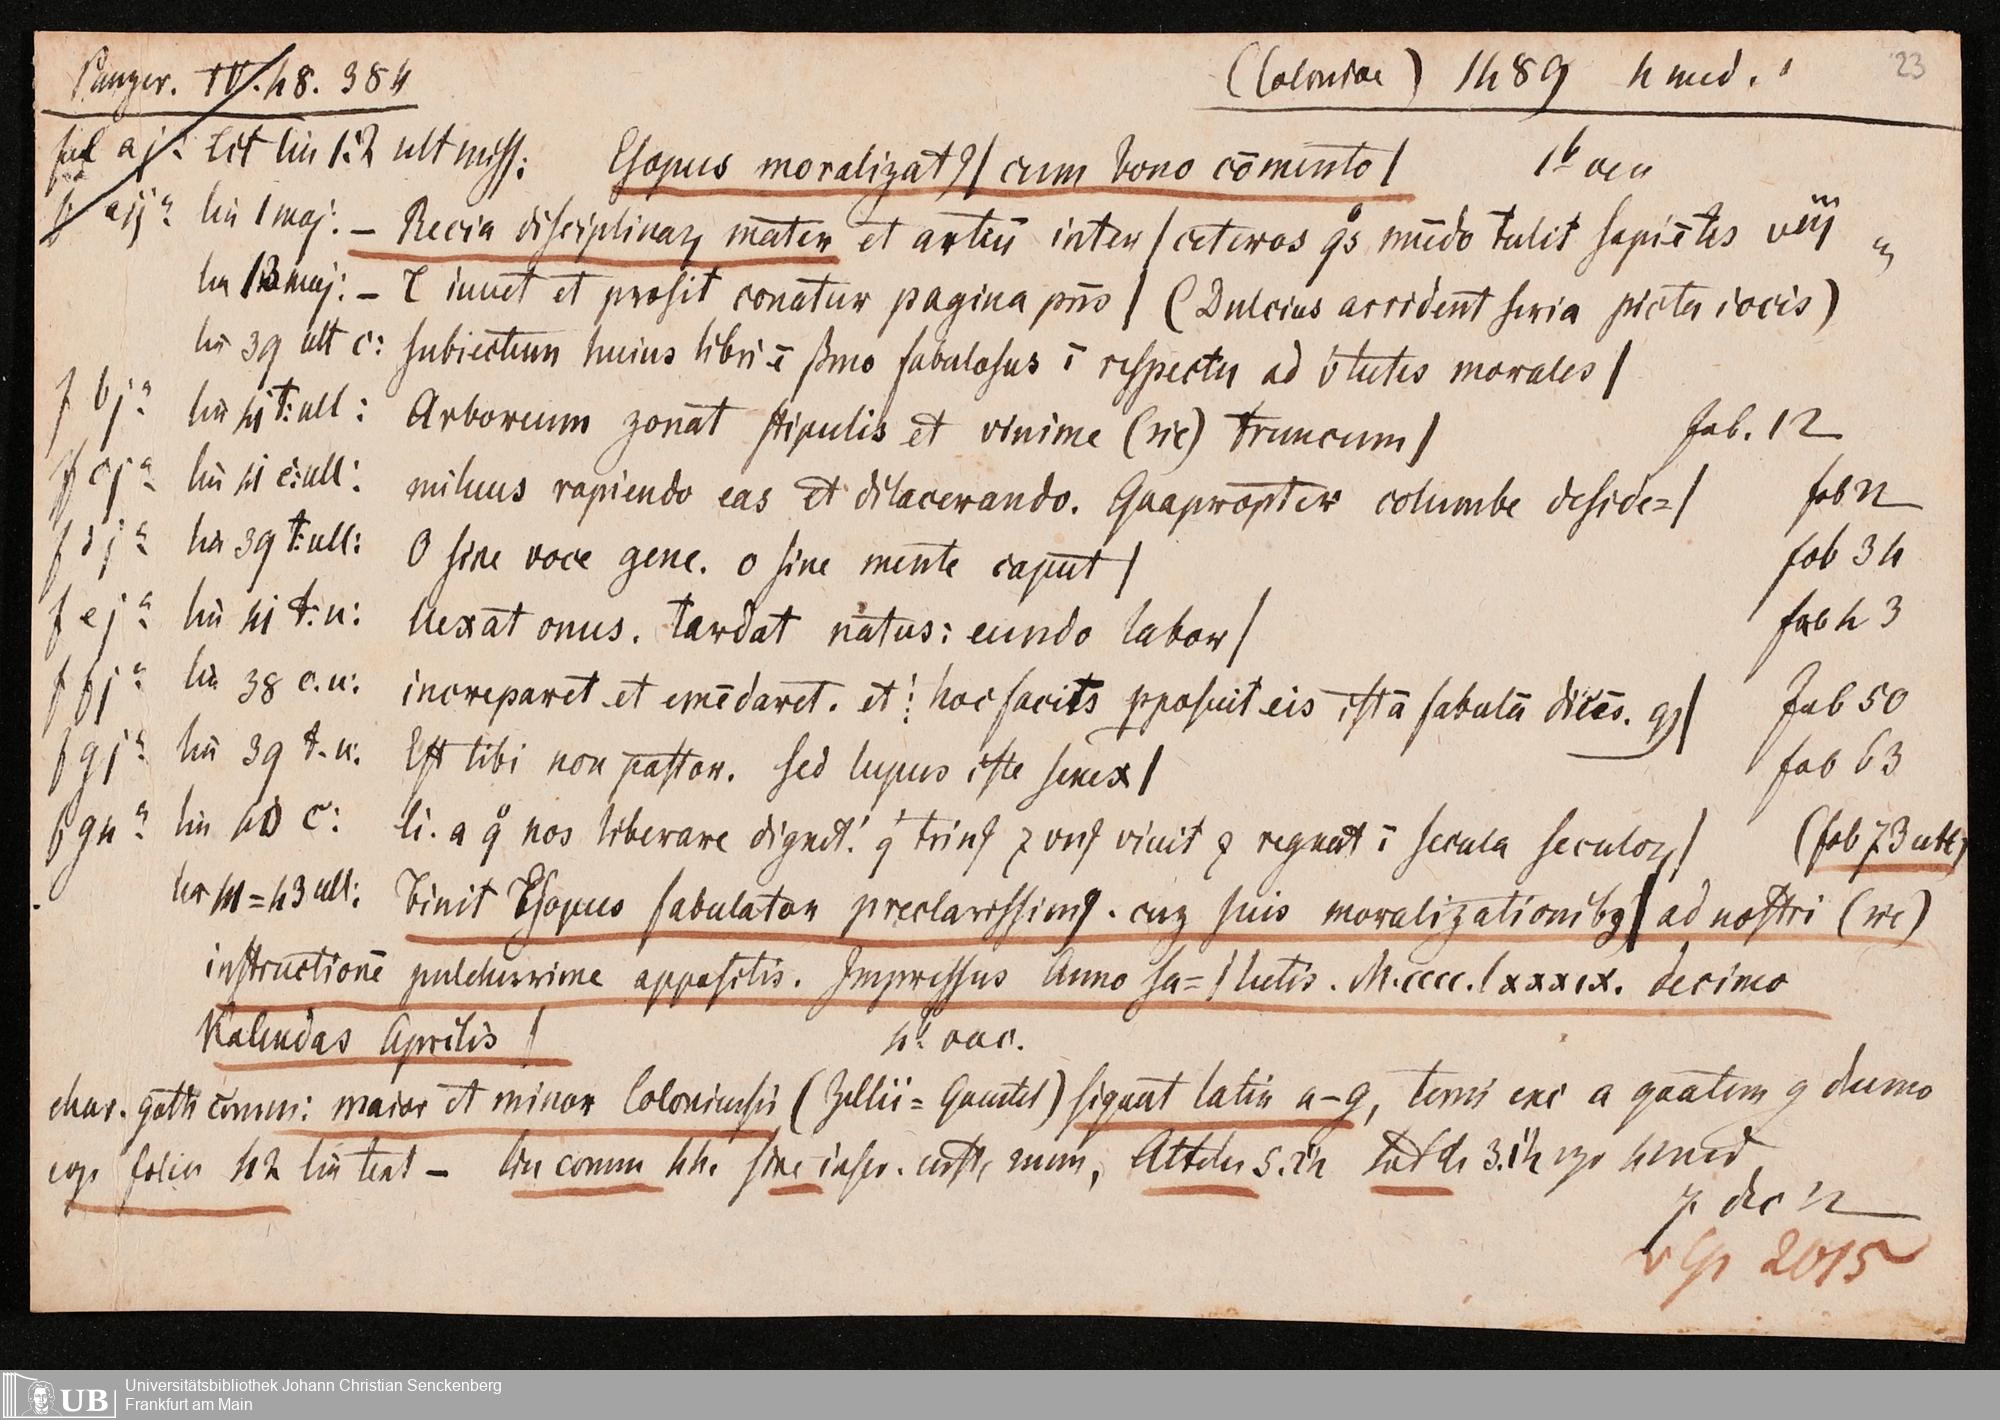 Panzer. IV. 48. 384 (Coloniae) 1489 4 med. 23
fol aj. Tit lin 1.2 ult miss: Esopus moralizatꝰ/ cum bono cōmento/ 1b vac
f aijª lin 1 maj: – Grecia disciplinaꝝ mater et artiū inter/ceteros qͦs mūdo tulit sapiētes
lin 13 maj: – T iuuet et prosit conatur pagina pn̄s / (Dulcius arrident seria picta iocis)
lin 39 ult c: subiectum huius libri ē ẞmo fabulosus ī respectu ad v̓tutes morales/
f bjª lin 41 t: ult: Arboreum zonat stipulis et vinime (sic) truncum/ fab. 12
f cjª lin 41 c: ult: miluus rapiendo eas et dilacerando. Quapropter columbe deside=/ fab 22
f djª lin 39 t: ult: O sine voce gene. o sine mente caput/ fab 34
f ejª lin 41 t. u: Uexat onus. tardat natus: eundo labor/ fab 43
f fjª lin 38 c. u: increparet et emēdaret. et hoc facit pposuit eis istā fabulā dicēs. qꝫ/ fab 50
f gjª lin 39 t. u. Est tibi non pastor. sed lupus iste senex/ fab 63
f g4ª lin 40 c: li. a qͦ nos liberare dignet. q̓ trinꝰ ⁊ vnꝰ viuit ⁊ regnat ī secula seculoꝝ/ (fab 73 ult)
lin 41=43 ult: Finit Esopus fabulator preclarissimꝰ. cuꝫ suis moralizationibꝫ/ ad nostri (sic)
instructionē pulcherrime appositis. Impressus Anno sa=/lutis. M.cccc.lxxxix. decimo
Kalendas Aprilis / vac.
char. goth comm: maior et minor Coloniensis (Zellii = Quentel) signat latin a–g, terni exc a quatern g duerno
folia 42 lin text – lin comm 44. sine inscr. cust, num, 4 med
7. dec
v Cp 2015
Universitätsbibliothek Johann Christian Senckenberg
UB Frankfurt am Main